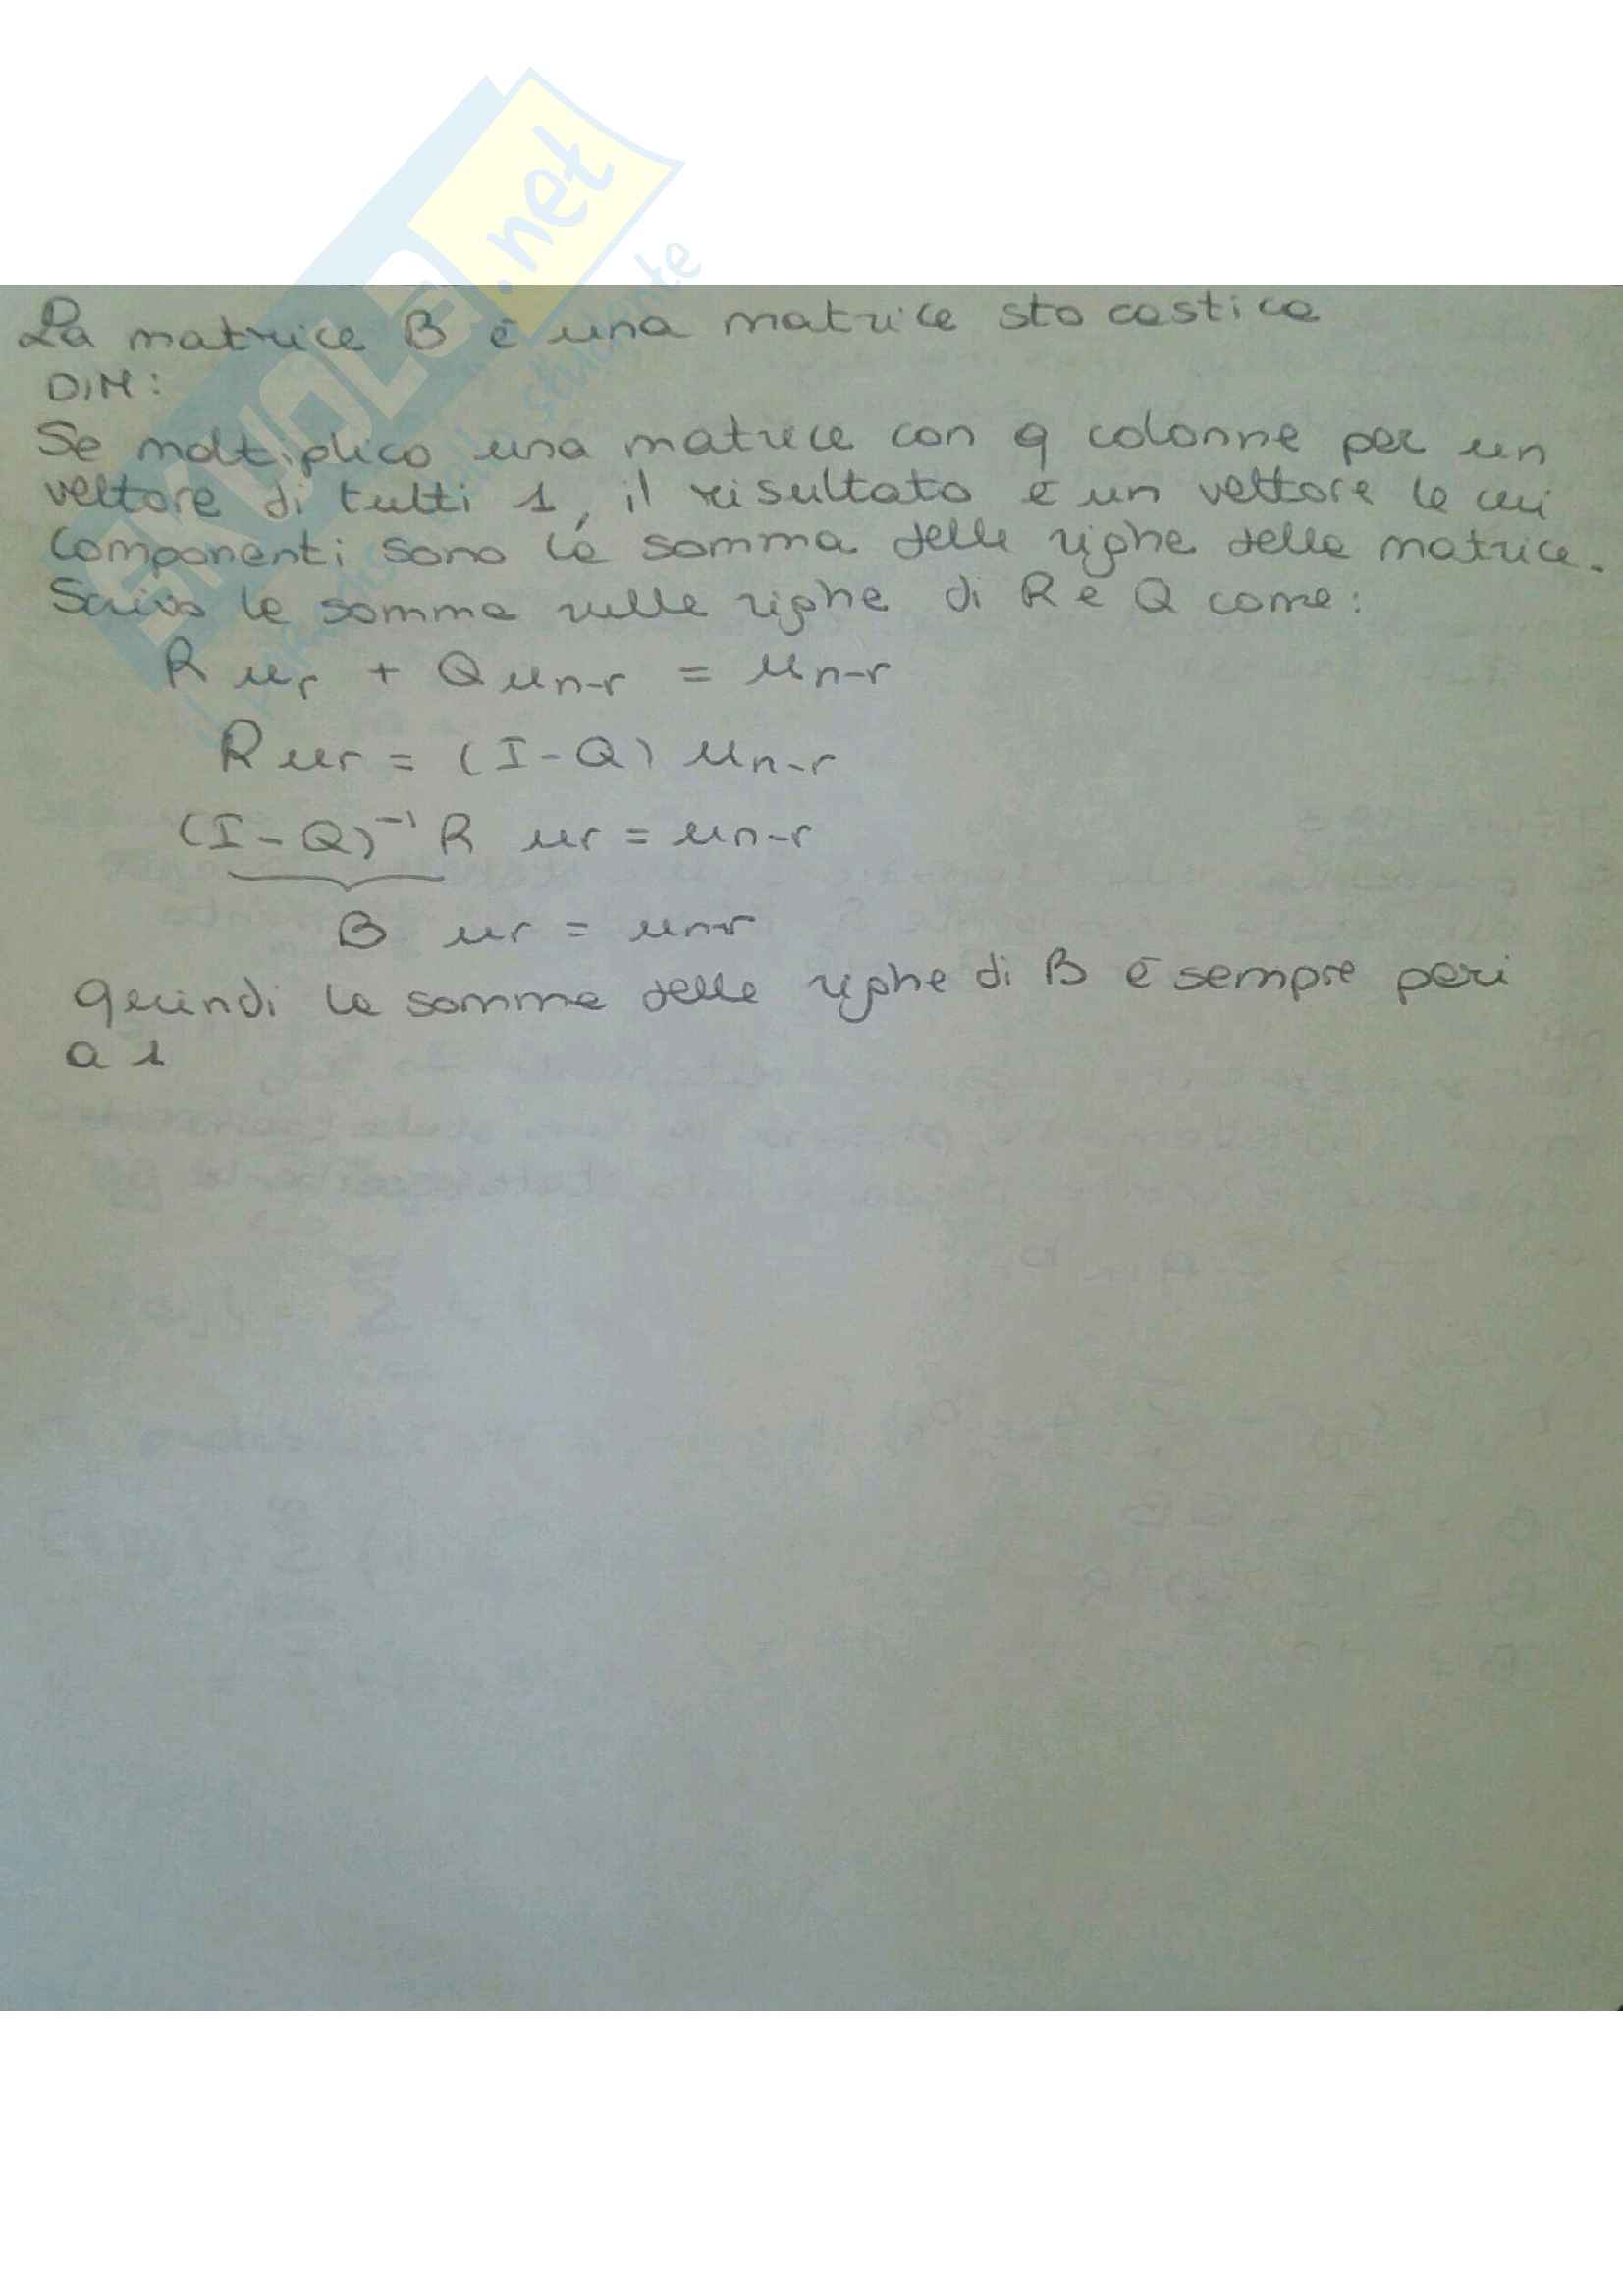 SKUOLA.net
La matrice B è una matrice stocastica
DIM:
Se moltiplico una matrice con q colonne per un
vettore di tutti 1, il risultato è un vettore le cui
componenti sono la somma delle righe della matrice.
Scrivo la somma sulle righe di R e Q come:
R ur + Q un-r = un-r
R ur = (I-Q) un-r
(I-Q)⁻¹ R ur = un-r
B ur = un-r
Quindi la somma delle righe di B è sempre pari
a 1